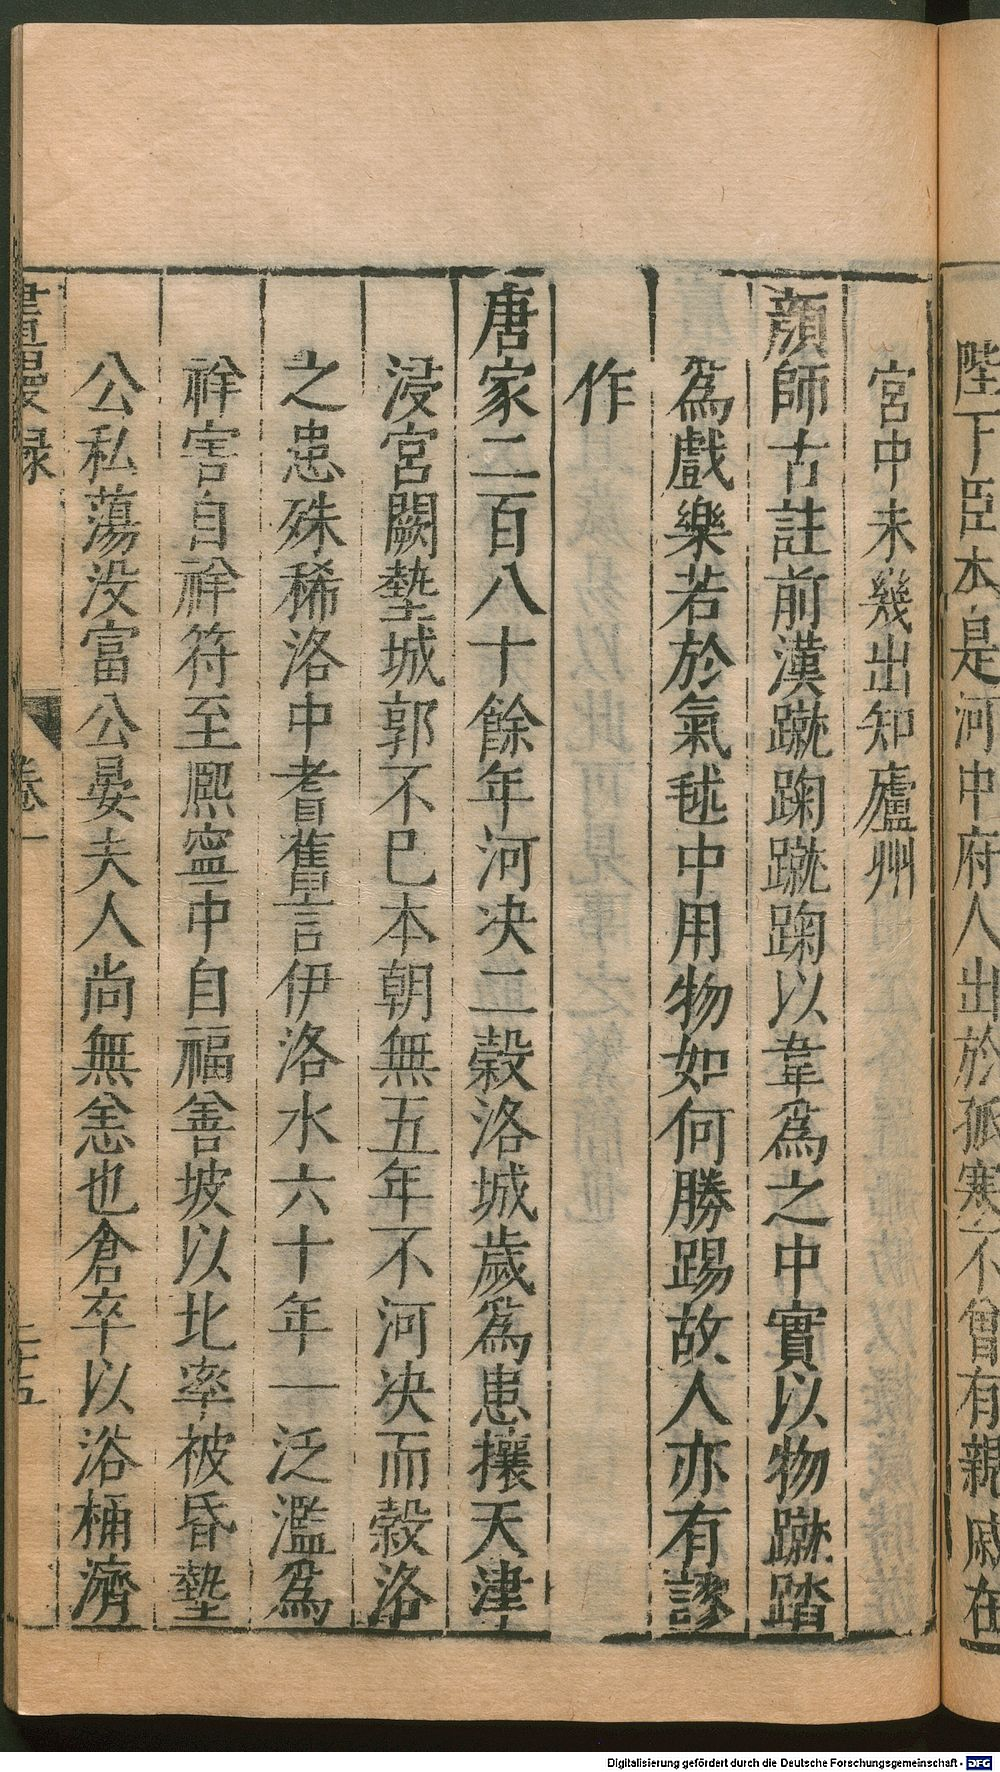 陛下臣本是河中府人出於孤寒不曾有親戚在
宮中未幾出知廬州
顔師古註前漢蹴踘蹴踘以韋爲之中實以物蹴踏
爲戲樂若於氣毬中用物如何勝踢故人亦有謬
作
唐家二百八十餘年河决二穀洛城歲爲患攘天津
浸宮闕墊城郭不已本朝無五年不河决而穀洛
之患殊稀洛中耆舊言伊洛水六十年一泛濫爲
祥害自祥符至熙寧中自福善坡以北率被昏墊
公私蕩没富公晏夫人尚無恙也倉卒以浴桶濟
畫墁録
卷一
二十五
Digitalisierung gefördert durch die Deutsche Forschungsgemeinschaft - DFG